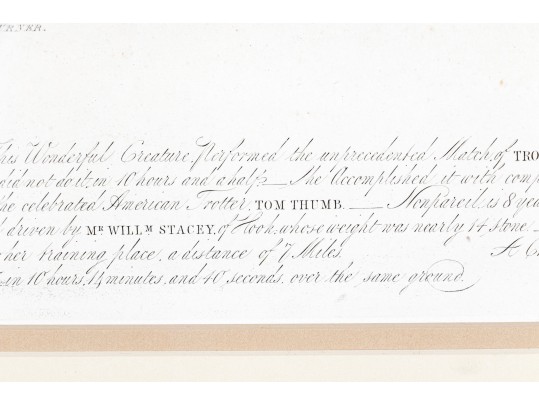 URNER.
his Wonderful Creature Performed the unprecedented Match, of TRO
did not do it, in 10 hours and a half — She Accomplished it with comp
the celebrated American Trotter, TOM THUMB. — Nonpareil is 8 yea
driven by MR WILLM STACEY, of Hook, whose weight was nearly 14 stone. —
her training place, a distance of 7 Miles. A C
in 10 hours, 14 minutes, and 40 seconds, over the same ground.